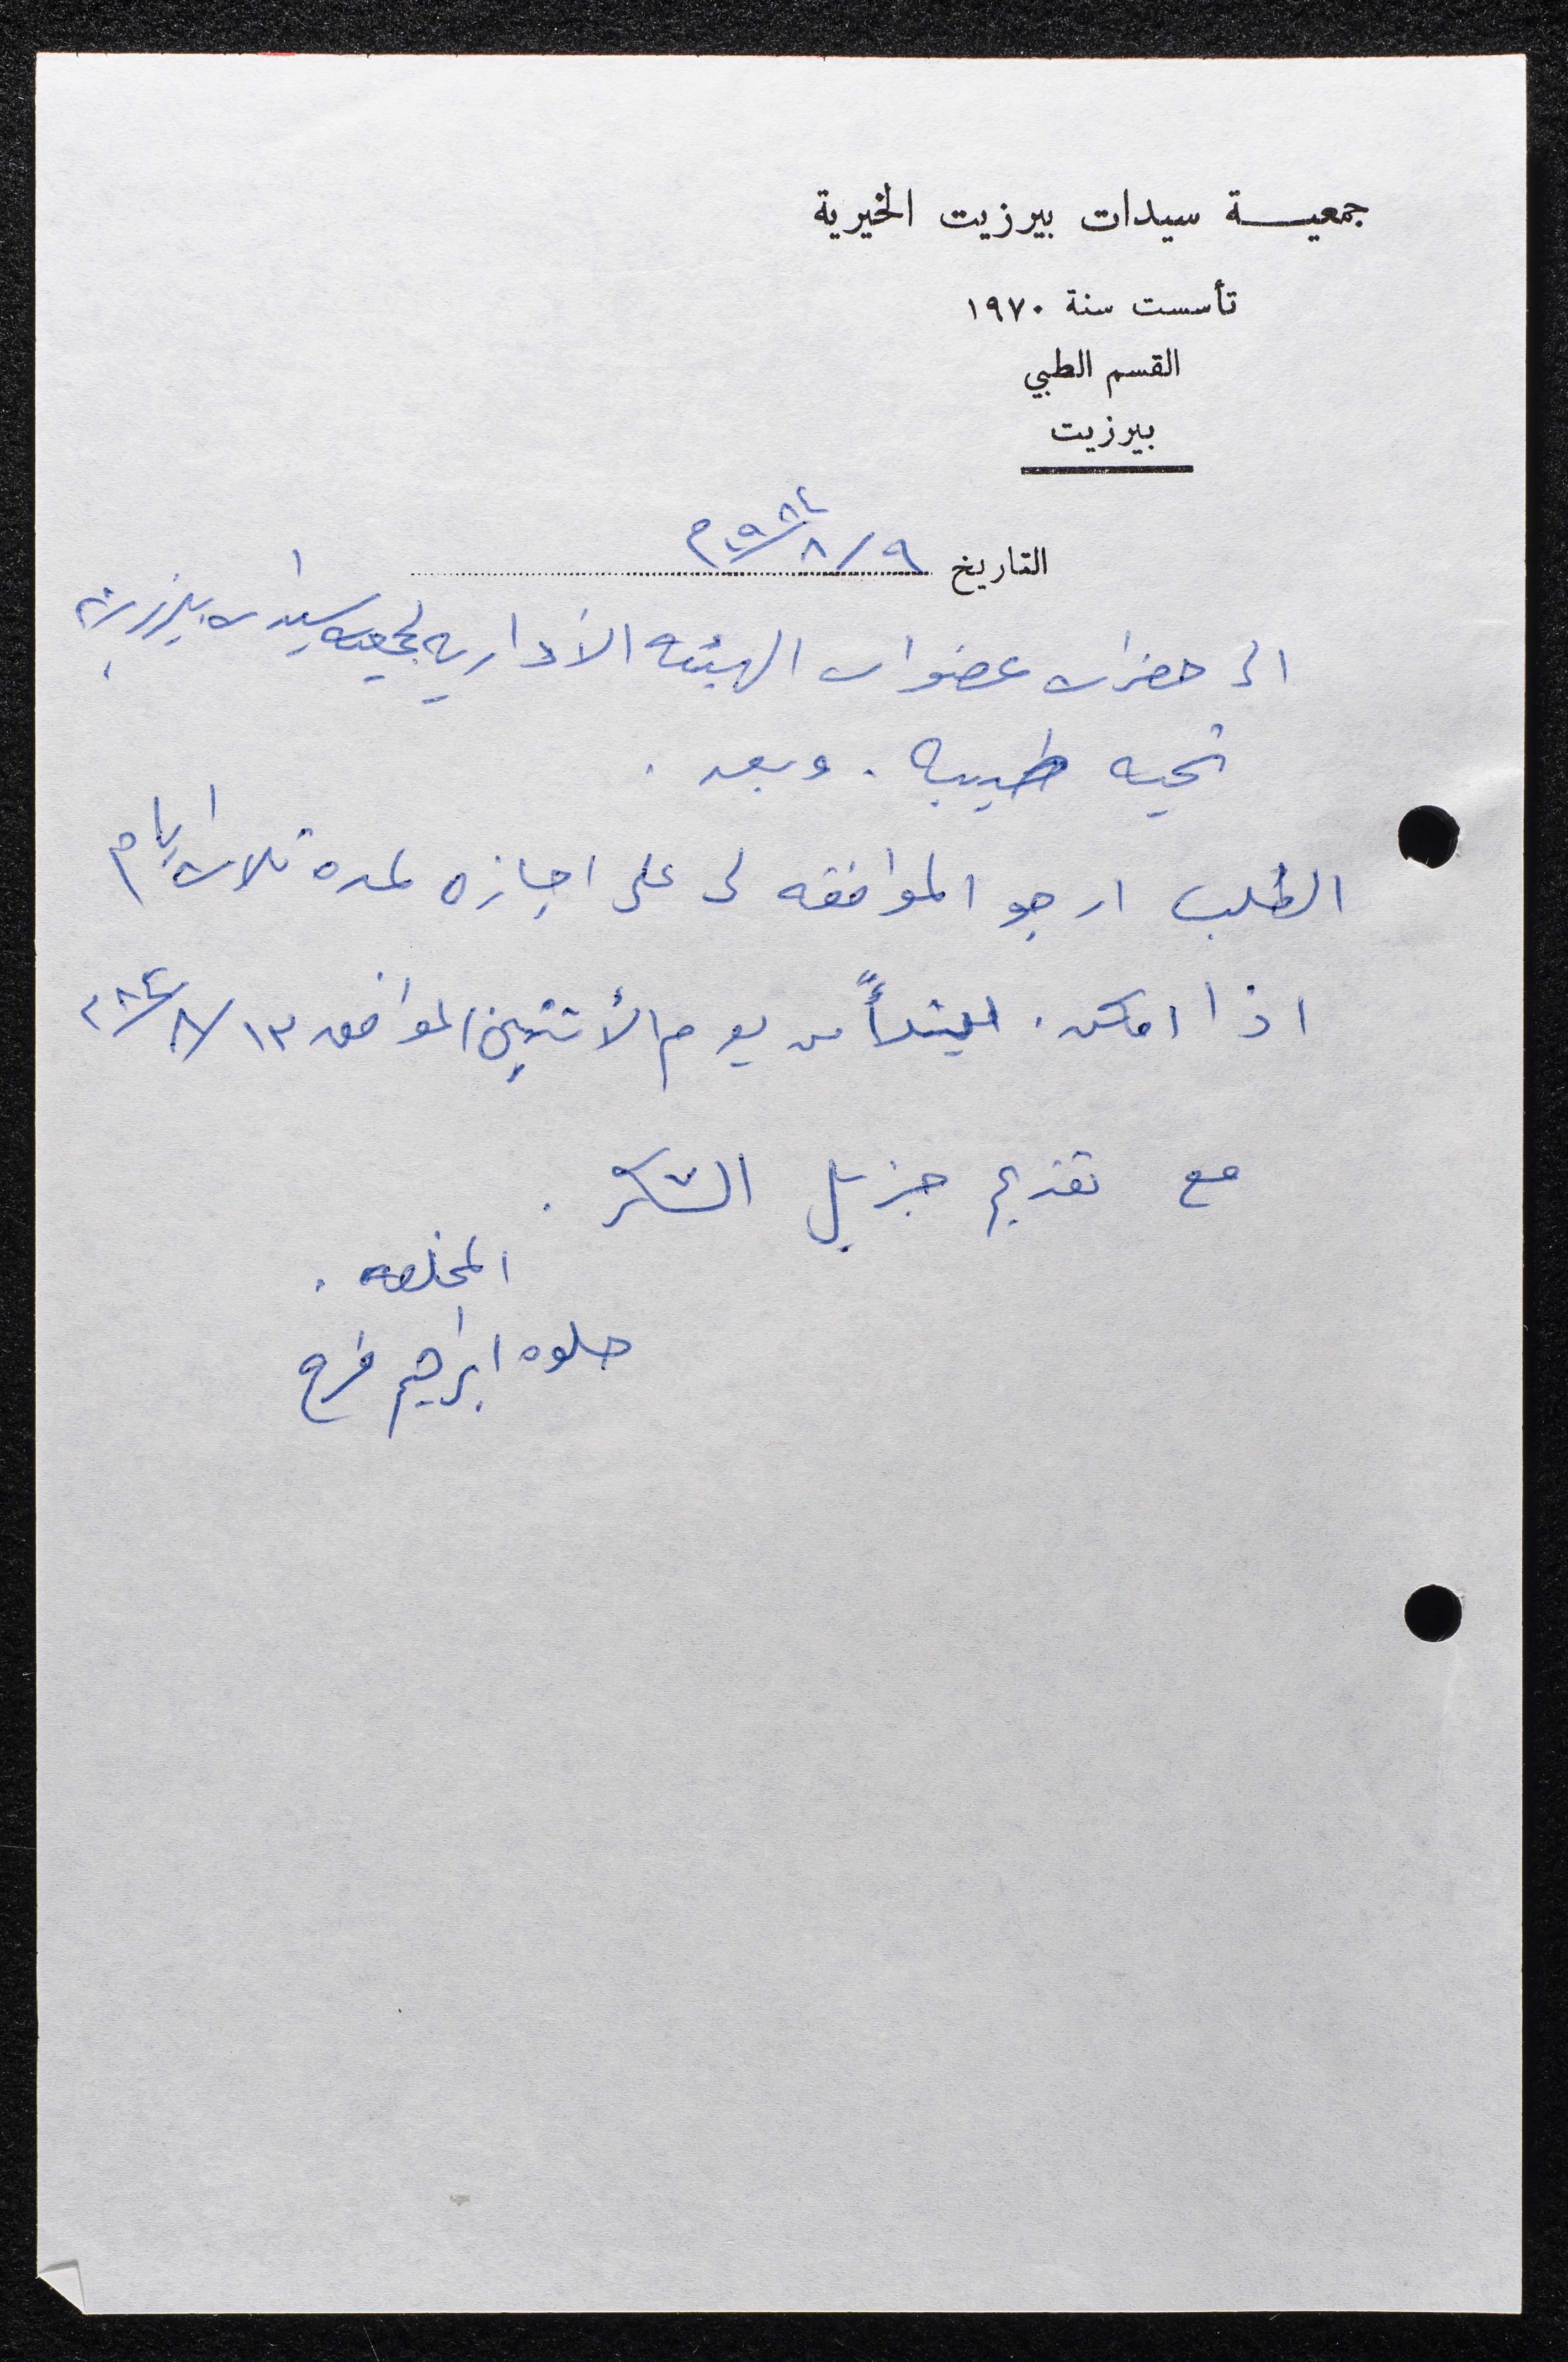 جمعيـــة سيدات بيرزيت الخيرية
تأسست سنة ١٩٧٠
القسم الطبي
بيرزيت
التاريخ ٩/٨/١٩٨٤م
الى حضرات عضوات الهيئه الاداريه لجمعيه سيدات بيرزيت
تحيه طيبه . وبعد .
الطلب ارجو الموافقه لى على اجازه لمده ثلاث ايام
اذا امكن . ابتداً من يوم الأثنين الموافق ١٣/٨/٨٤
مع تقديم جزيل الشكر .
المخلصه .
حلوه ابراهيم فرح